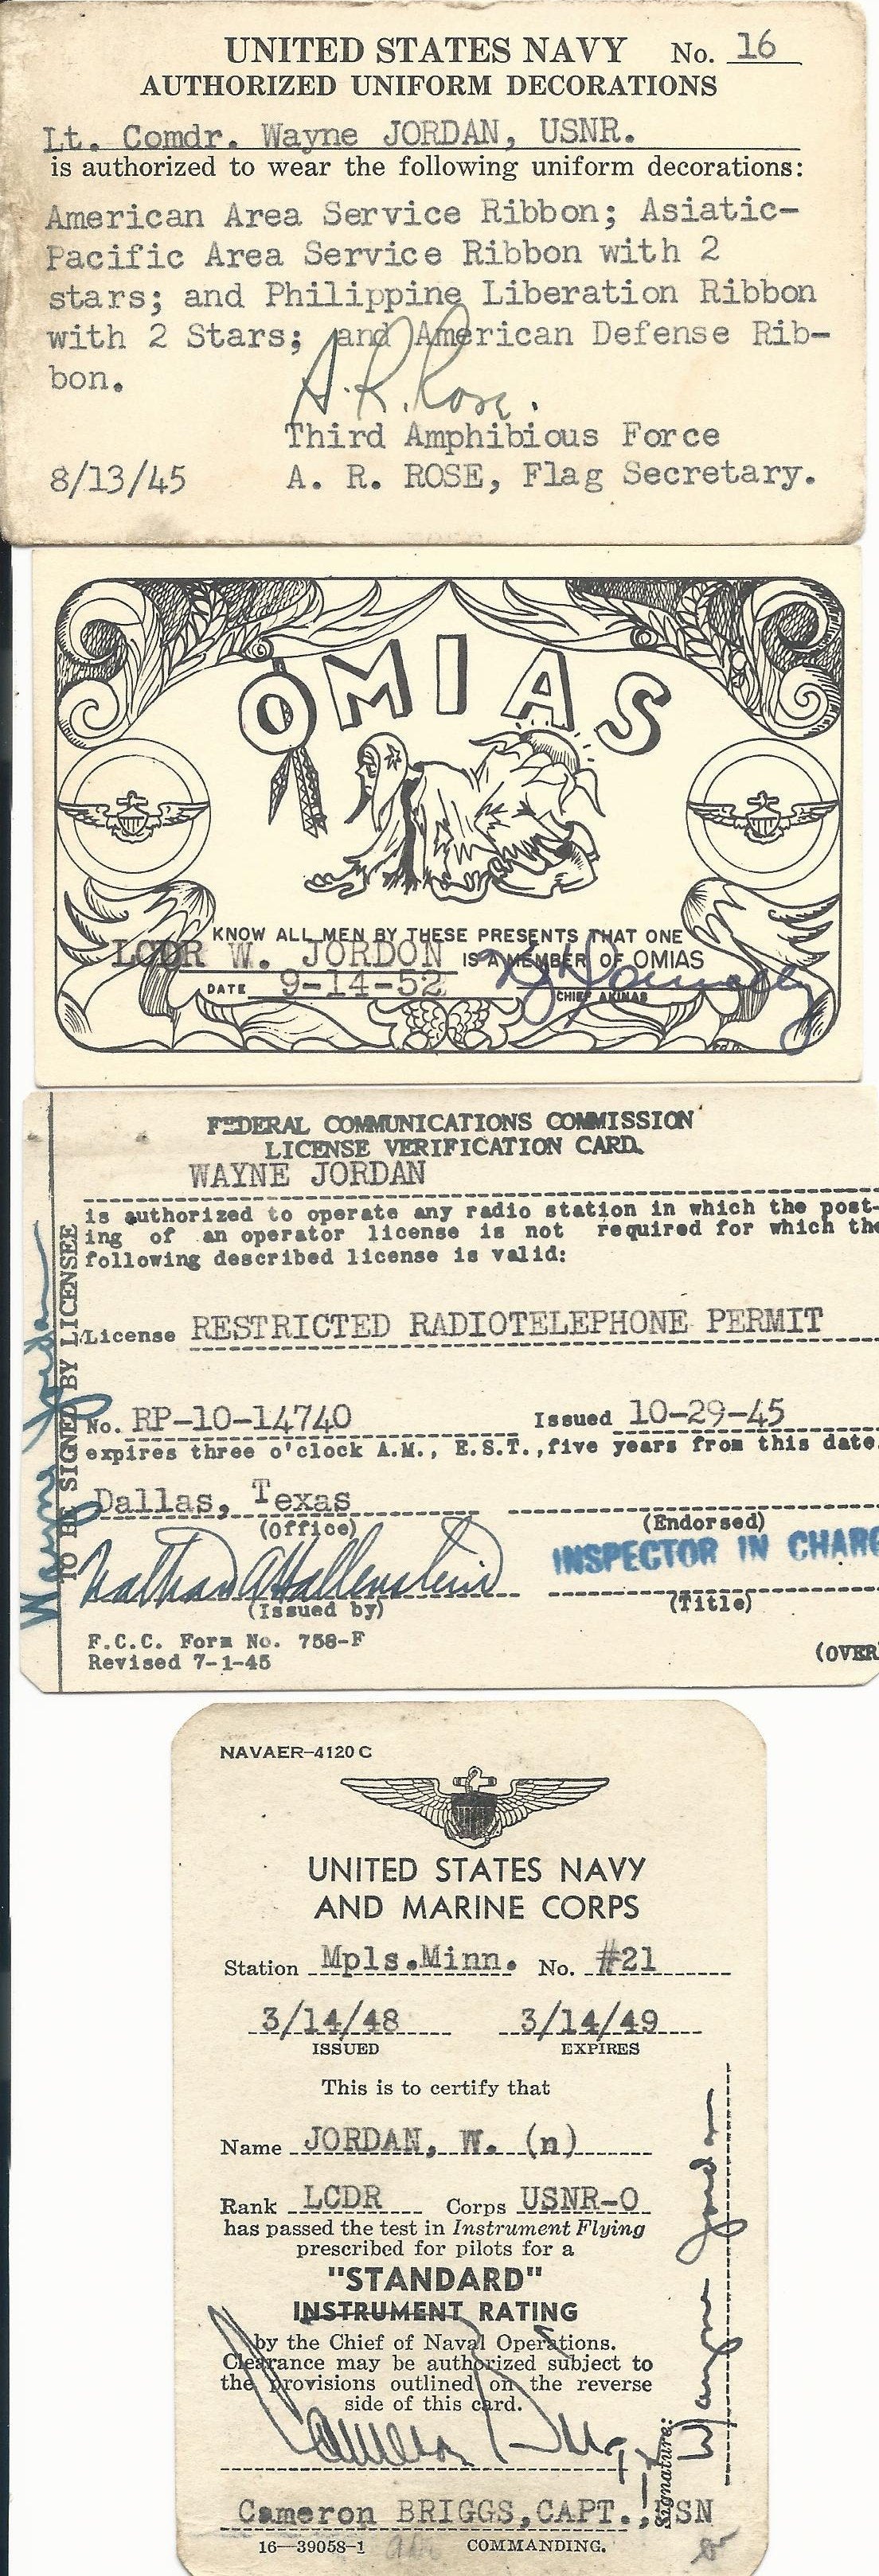 UNITED STATES NAVY No. 16
AUTHORIZED UNIFORM DECORATIONS
Lt. Comdr. Wayne JORDAN, USNR.
is authorized to wear the following uniform decorations:
American Area Service Ribbon; Asiatic-
Pacific Area Service Ribbon with 2
stars; and Philippine Liberation Ribbon
with 2 Stars; and American Defense Rib-
bon.
A. R. Rose.
Third Amphibious Force
8/13/45 A. R. ROSE, Flag Secretary.
OMIAS
KNOW ALL MEN BY THESE PRESENTS THAT ONE
LCDR W. JORDON IS A MEMBER OF OMIAS
DATE 9-14-52 CHIEF AKINAS
FEDERAL COMMUNICATIONS COMMISSION
LICENSE VERIFICATION CARD.
WAYNE JORDAN
is authorized to operate any radio station in which the post-
ing of an operator license is not required for which the
following described license is valid:
License RESTRICTED RADIOTELEPHONE PERMIT
No. RP-10-14740 Issued 10-29-45
expires three o'clock A.M., E.S.T.,five years from this date.
Dallas, Texas
(Office) (Endorsed)
Nathan A Hallenstein INSPECTOR IN CHARG
(Issued by) (Title)
F.C.C. Form No. 758-F
Revised 7-1-45 (OVER
TO BE SIGNED BY LICENSEE
Wayne Jordan
NAVAER-4120 C
UNITED STATES NAVY
AND MARINE CORPS
Station Mpls.Minn. No. #21
3/14/48 3/14/49
ISSUED EXPIRES
This is to certify that
Name JORDAN, W. (n)
Rank LCDR Corps USNR-O
has passed the test in Instrument Flying
prescribed for pilots for a
"STANDARD"
INSTRUMENT RATING
by the Chief of Naval Operations.
Clearance may be authorized subject to
the provisions outlined on the reverse
side of this card.
Cameron Briggs
Cameron BRIGGS,CAPT., USN
16—39058-1 COMMANDING.
Signature:
Wayne Jordan